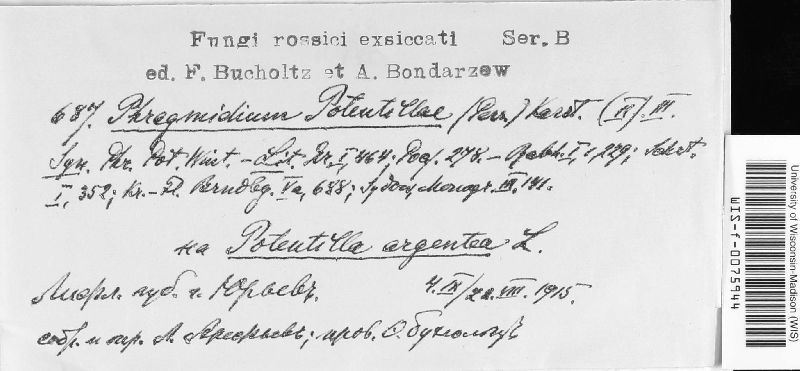 Fungi rossici exsiccati Ser. B
ed. F. Bucholtz et A. Bondarzew
687. Phragmidium Potentillae (Pers.) Karst. (II). III.
Syn. Phr. Pot. Wint. – Lit. Kr. I, 464; 278. – Rabh. I, 1, 229;
I, 352; Kr. – Fl. Brndbg. Va, 688; Sydow, Monogr. III, 141.
на Potentilla argentea L.
Лифл. губ. г. Юрьевъ. 22. VIII. 1915.
собр. и опр. ; пров. Ѳ. Бухгольцъ
University of Wisconsin-Madison (WIS)
WIS-f-0075944